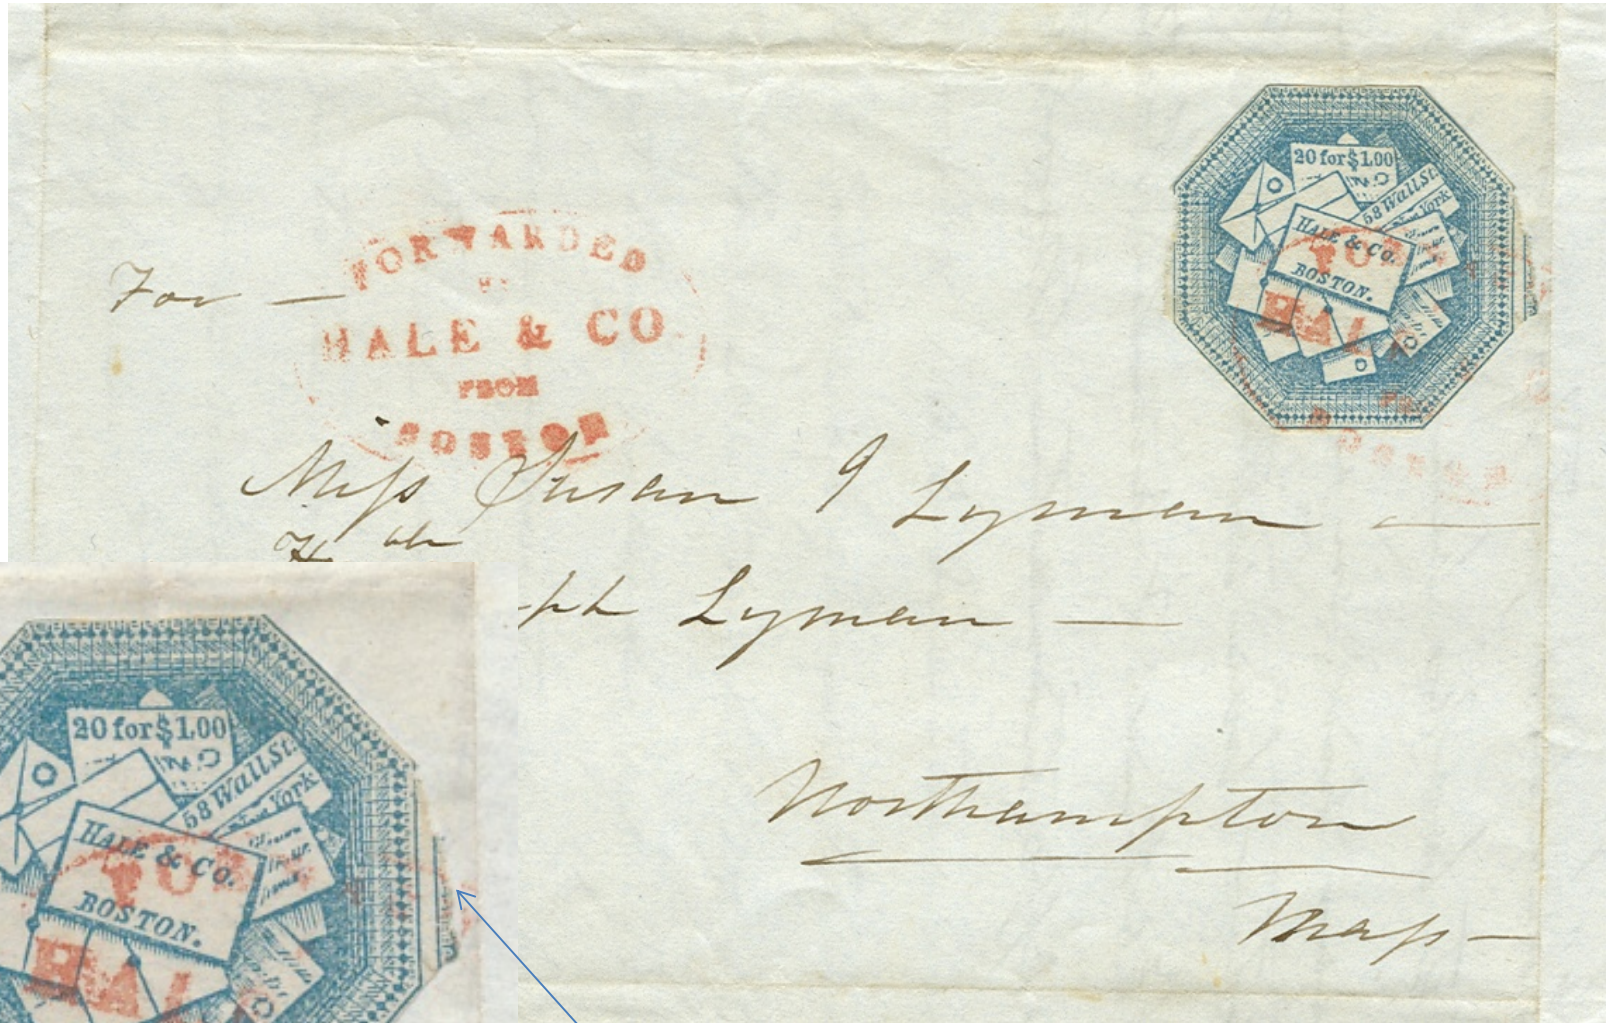 For —
FORWARDED
BY
HALE & CO
FROM
BOSTON
20 for $1.00
58 Wall St.
New York
HALE & Co.
BOSTON.
FOR
HALE
BOSTON
Miss Susan I Lyman —
Hble
-ph Lyman —
Northampton
Mass —
20 for $1.00
58 Wall St.
New York
HALE & Co.
BOSTON.
FOR
HAL